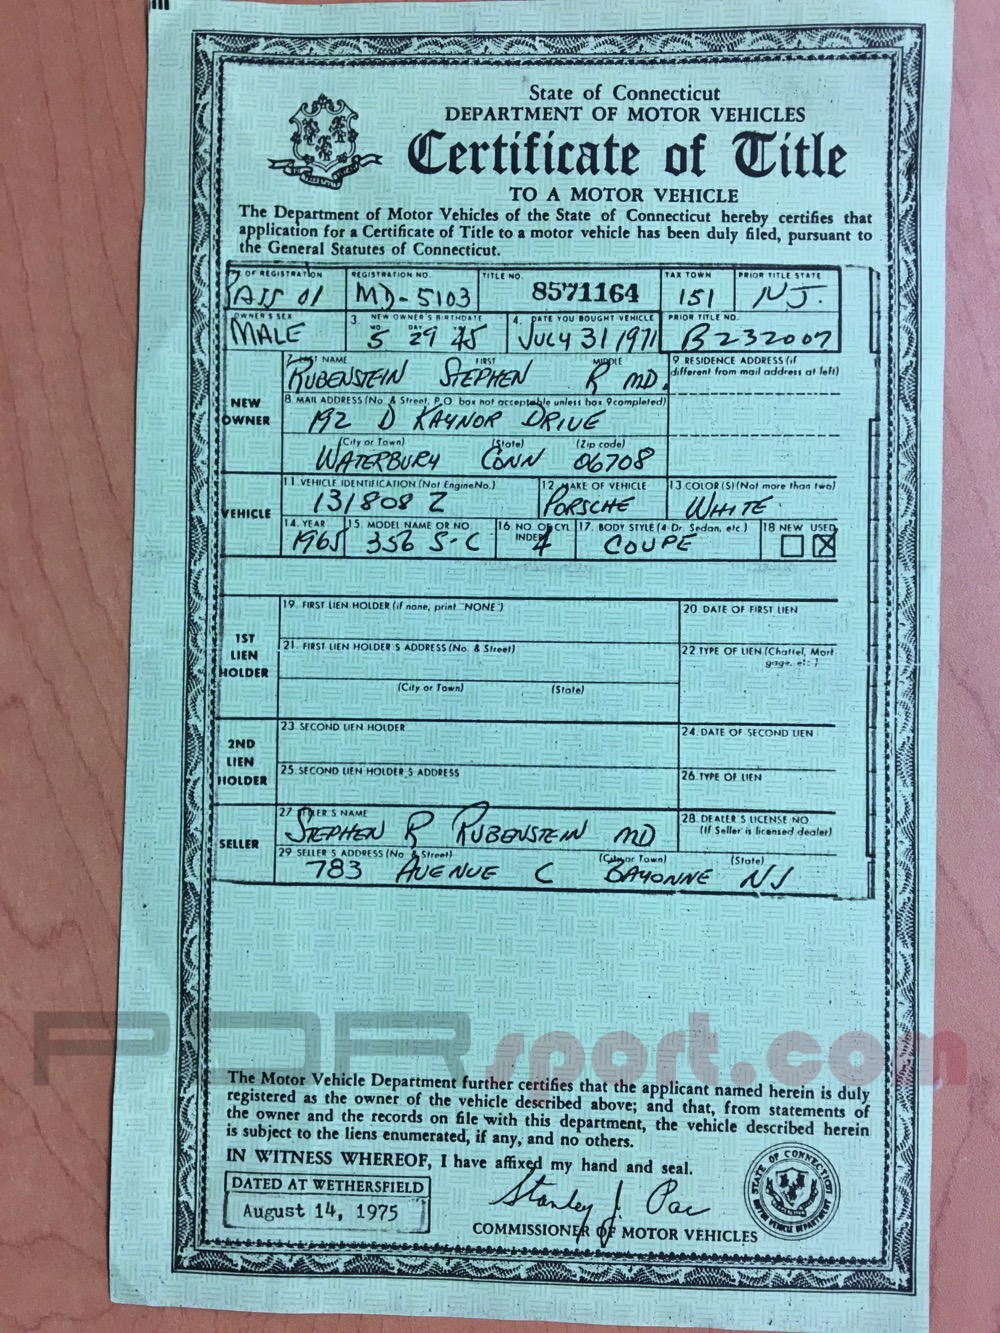 State of Connecticut
DEPARTMENT OF MOTOR VEHICLES
Certificate of Title
TO A MOTOR VEHICLE
The Department of Motor Vehicles of the State of Connecticut hereby certifies that
application for a Certificate of Title to a motor vehicle has been duly filed, pursuant to
the General Statutes of Connecticut.
OF REGISTRATION REGISTRATION NO. TITLE NO. TAX TOWN PRIOR TITLE STATE
01 MD-5103 8571164 151 NJ.
OWNER'S SEX 3. NEW OWNER'S BIRTHDATE 4. DATE YOU BOUGHT VEHICLE PRIOR TITLE NO.
MALE MO. 5 DAY 29 45 JULY 31 1971 B232007
NEW OWNER
LAST NAME FIRST MIDDLE 9. RESIDENCE ADDRESS (if
different from mail address at left)
RUBENSTEIN STEPHEN R MD.
8. MAIL ADDRESS (No. & Street, P.O. box not acceptable unless box 9 completed)
192 D KAYNOR DRIVE
(City or Town) (State) (Zip code)
WATERBURY CONN 06708
VEHICLE
11 VEHICLE IDENTIFICATION (Not Engine No.) 12. MAKE OF VEHICLE 13 COLOR (S) (Not more than two)
131808 Z PORSCHE WHITE
14. YEAR 15. MODEL NAME OR NO. 16 NO OF CYLINDER 17. BODY STYLE (4 Dr. Sedan, etc.) 18 NEW USED
1965 356 S-C 4 COUPE
1ST LIEN HOLDER
19. FIRST LIEN HOLDER (if none, print "NONE") 20 DATE OF FIRST LIEN
21. FIRST LIEN HOLDER'S ADDRESS (No. & Street) 22 TYPE OF LIEN (Chattel, Mort
gage, etc.)
(City or Town) (State)
2ND LIEN HOLDER
23 SECOND LIEN HOLDER 24. DATE OF SECOND LIEN
25. SECOND LIEN HOLDER'S ADDRESS 26. TYPE OF LIEN
SELLER
27 SELLER'S NAME 28. DEALER'S LICENSE NO
(If Seller is licensed dealer)
STEPHEN R RUBENSTEIN MD
29 SELLER'S ADDRESS (No & Street) (City or Town) (State)
783 AVENUE C BAYONNE NJ
PORsport.com
The Motor Vehicle Department further certifies that the applicant named herein is duly
registered as the owner of the vehicle described above; and that, from statements of
the owner and the records on file with this department, the vehicle described herein
is subject to the liens enumerated, if any, and no others.
IN WITNESS WHEREOF, I have affixed my hand and seal.
DATED AT WETHERSFIELD
August 14, 1975
Stanley J. Pac
COMMISSIONER OF MOTOR VEHICLES
STATE OF CONNECTICUT
MOTOR VEHICLE DEPARTMENT